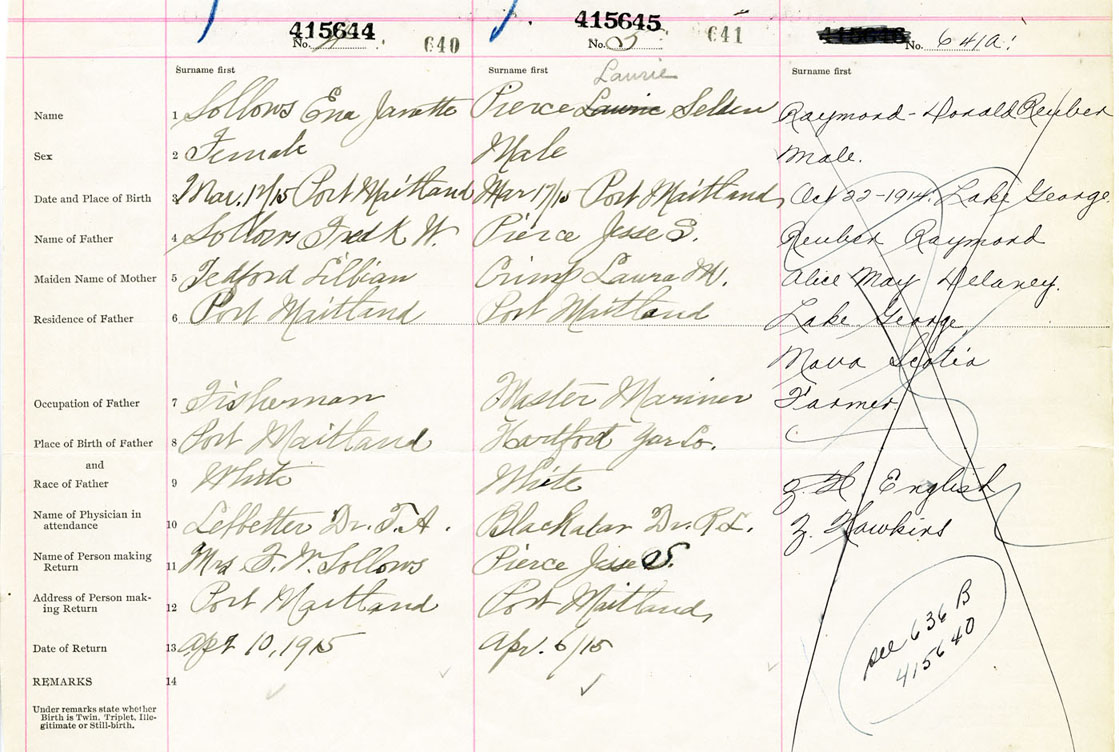 415644 415645
No. 640 No. 641 No. 641A
Surname first Surname first Surname first
Laurie
Name 1 Sollows Ena Janette Pierce Laurie Selden Raymond - Donald Reuben
Sex 2 Female Male Male.
Date and Place of Birth 3 Mar. 17/15 Port Maitland Mar 17/15 Port Maitland, Oct 22-1914. Lake George.
Name of Father 4 Sollows Fred K W. Pierce Jesse S. Reuben Raymond
Maiden Name of Mother 5 Tedford Lillian Crimp Laura M. Alice May Delaney.
Residence of Father 6 Port Maitland Port Maitland Lake George,
Nova Scotia
Occupation of Father 7 Fisherman Master Mariner Farmer.
Place of Birth of Father 8 Port Maitland Hartford Yar Co.
and
Race of Father 9 White White H. English
Name of Physician in
attendance 10 Lefbetter Dr. T. A. Blackadar Dr. R. L. Hawkins
Name of Person making
Return 11 Mrs F. W. Sollows Pierce Jesse S.
Address of Person mak-
ing Return 12 Port Maitland Port Maitland,
Date of Return 13 Apr 10, 1915 Apr. 6/15
see 636 B
415640
REMARKS 14
Under remarks state whether
Birth is Twin, Triplet, Ille-
gitimate or Still-birth.